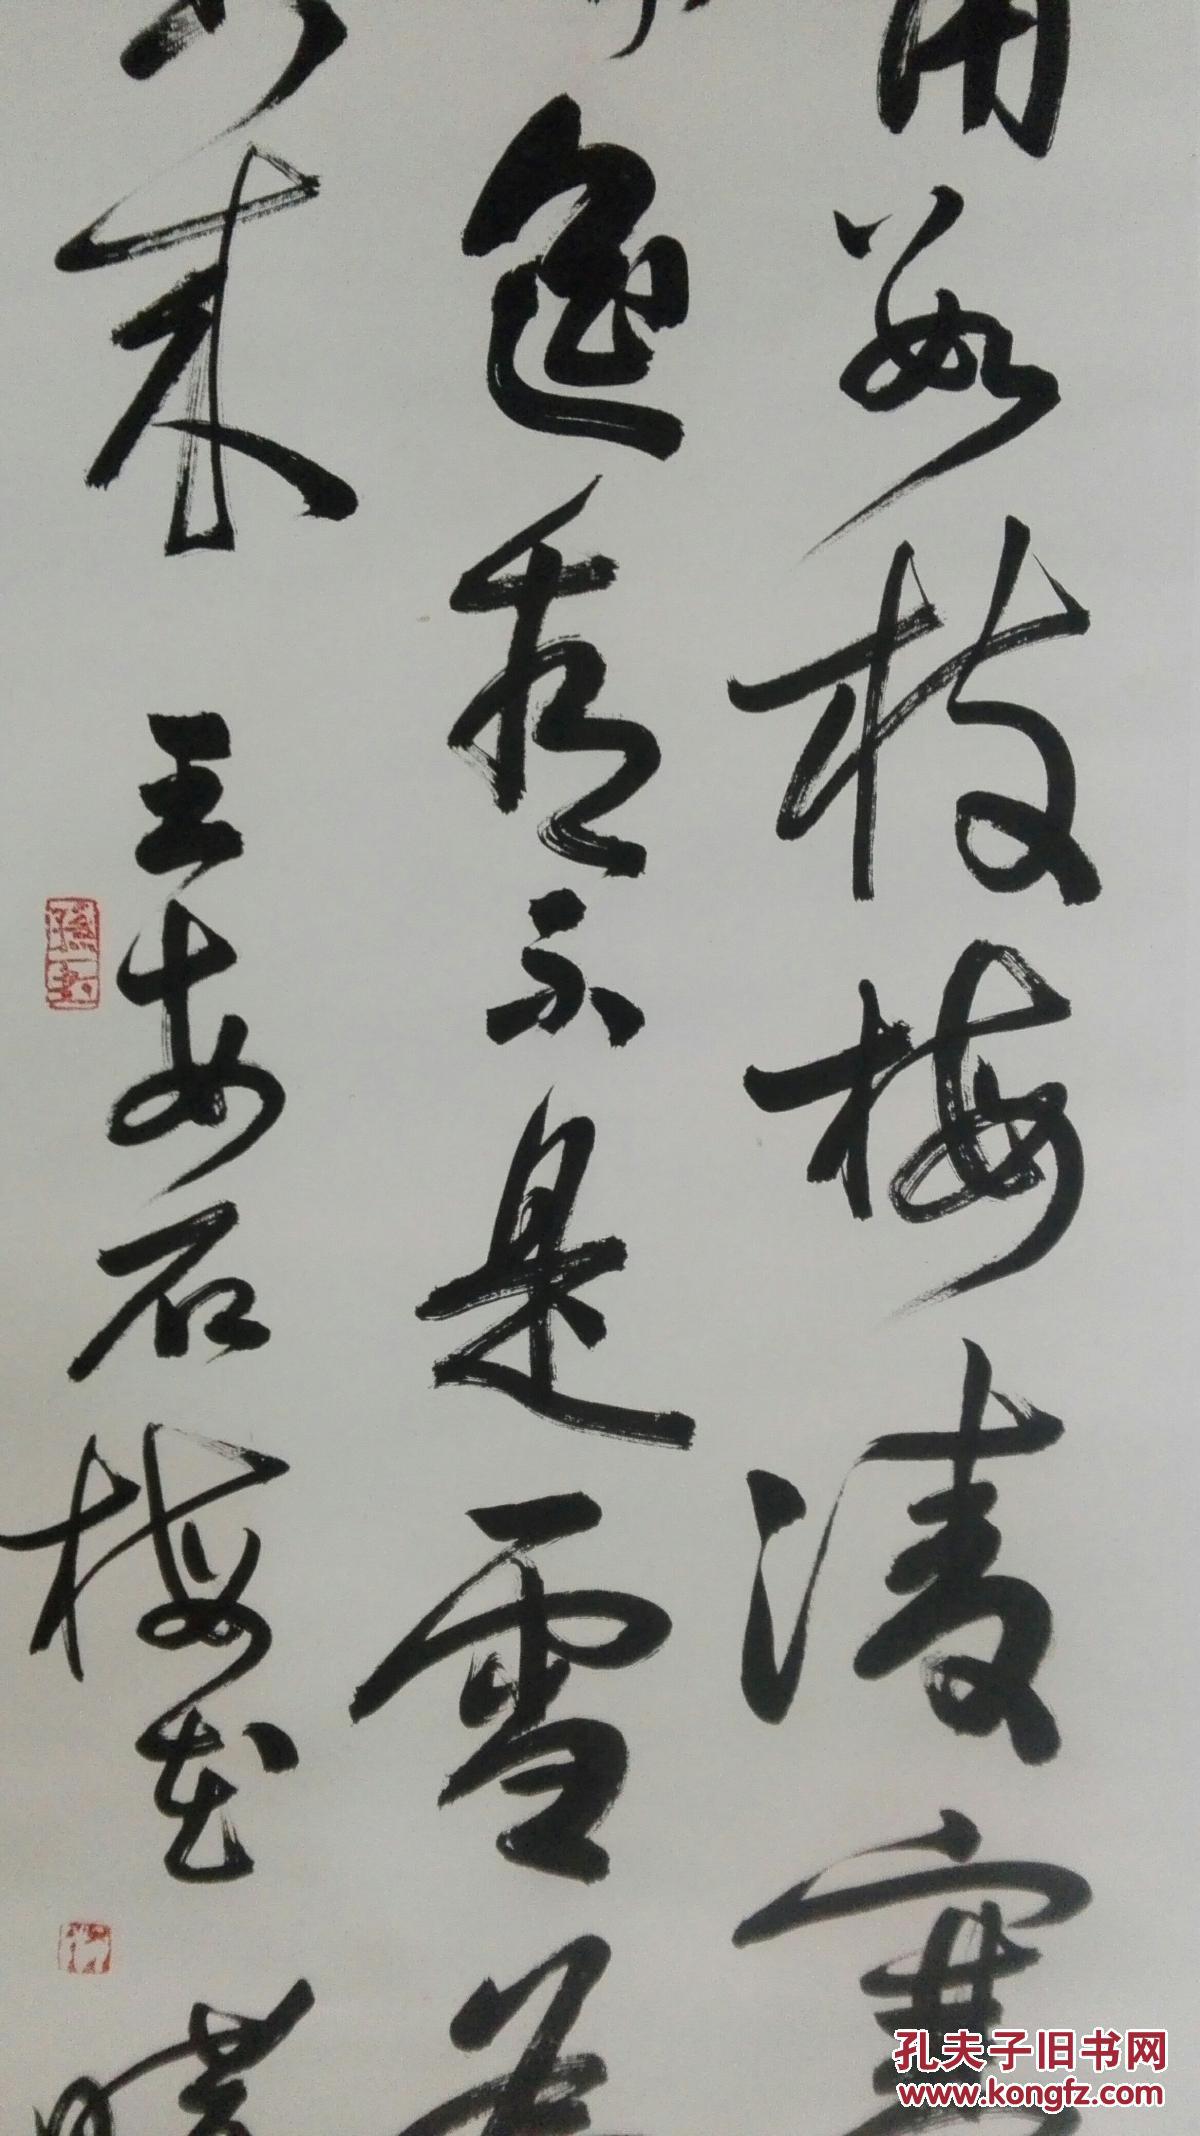 角数枝梅凌寒
遥看不是雪为
来
王安石梅花
孔夫子旧书网
www.kongfz.com